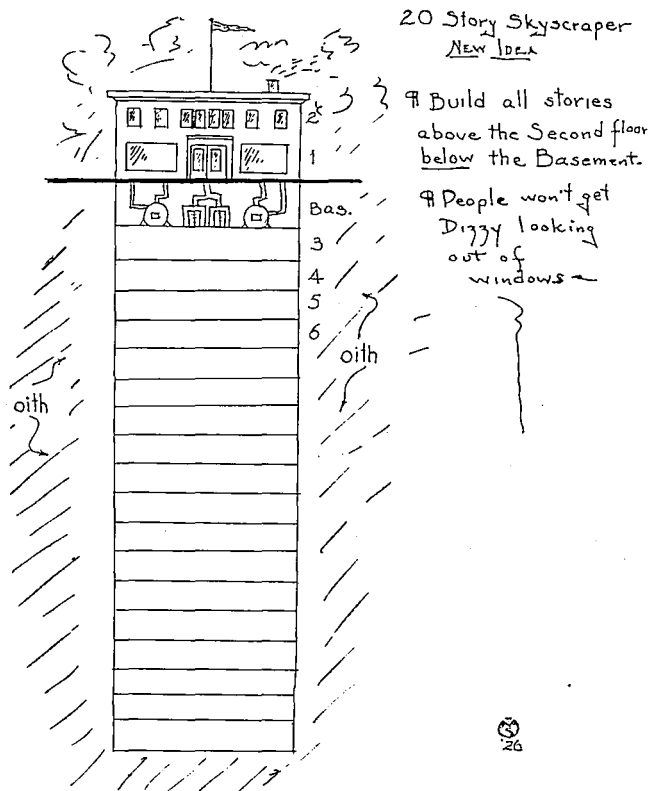 20 Story Skyscraper
New Idea
¶ Build all stories
above the Second floor
below the Basement.
¶ People won't get
Dizzy looking
out of
windows
2
1
Bas.
3
4
5
6
oith
oith
'26